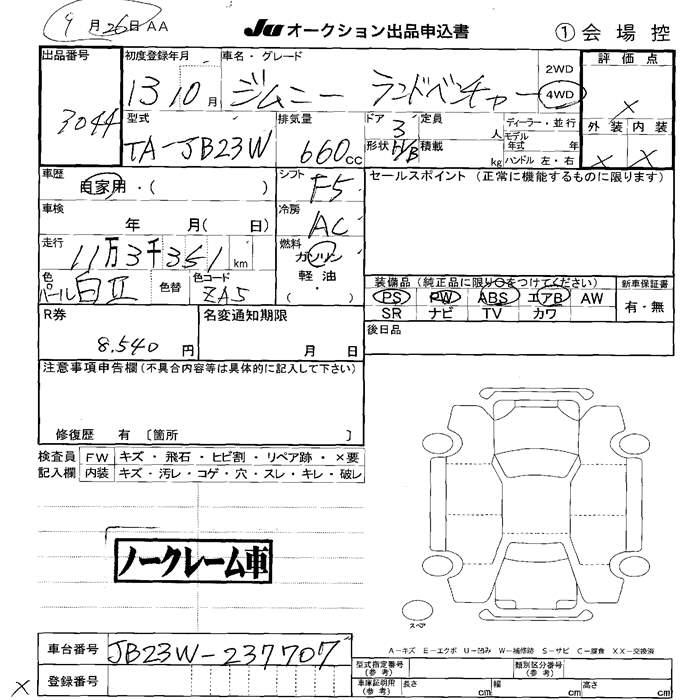 9月26日AA JU オークション出品申込書 ① 会場控
出品番号 3044
初度登録年月 13 10月
車名・グレード ジムニー ランドベンチャー
2WD
4WD
評価点 X
外装 内装
X X
型式 TA-JB23W
排気量 660cc
ドア 3
形状 H/B
定員 人
積載 kg
ディーラー・並行
モデル年式 年
ハンドル 左・右
車歴 自家用・( )
シフト F5
セールスポイント (正常に機能するものに限ります)
車検 年 月( 日)
冷房 AC
走行 11万3千351km
燃料 ガソリン 軽油 ( ・ )
色 パール白Ⅱ
色替
色コード ZA5
装備品 (純正品に限り○をつけてください)
PS PW ABS エアB AW
SR ナビ TV カワ
新車保証書
有・無
R券 8.540円
名変通知期限 月 日
後日品
注意事項申告欄 (不具合内容等は具体的に記入して下さい)
修復歴 有 〔箇所 〕
検査員記入欄
FW キズ・飛石・ヒビ割・リペア跡・×要
内装 キズ・汚レ・コゲ・穴・スレ・キレ・破レ
ノークレーム車
スペア
A-キズ E-エクボ U-凹み W-補修跡 S-サビ C-腐食 XX-交換済
車台番号 JB23W-237707
X 登録番号
型式指定番号(参考)
類別区分番号(参考)
車庫証明用(参考) 長さ cm 幅 cm 高さ cm